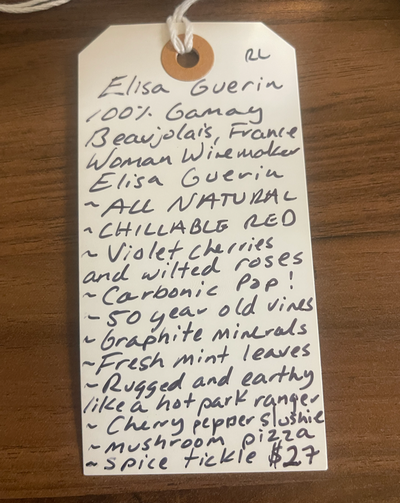 RL
Elisa Guerin
100% Gamay
Beaujolais, France
Woman Winemaker
Elisa Guerin
~ ALL NATURAL
~ CHILLABLE RED
~ Violet cherries
and wilted roses
~ Carbonic Pop!
~ 50 year old vines
~ Graphite minerals
~ Fresh mint leaves
~ Rugged and earthy
like a hot park ranger
~ Cherry pepper slushie
~ mushroom pizza
~ Spice tickle $27